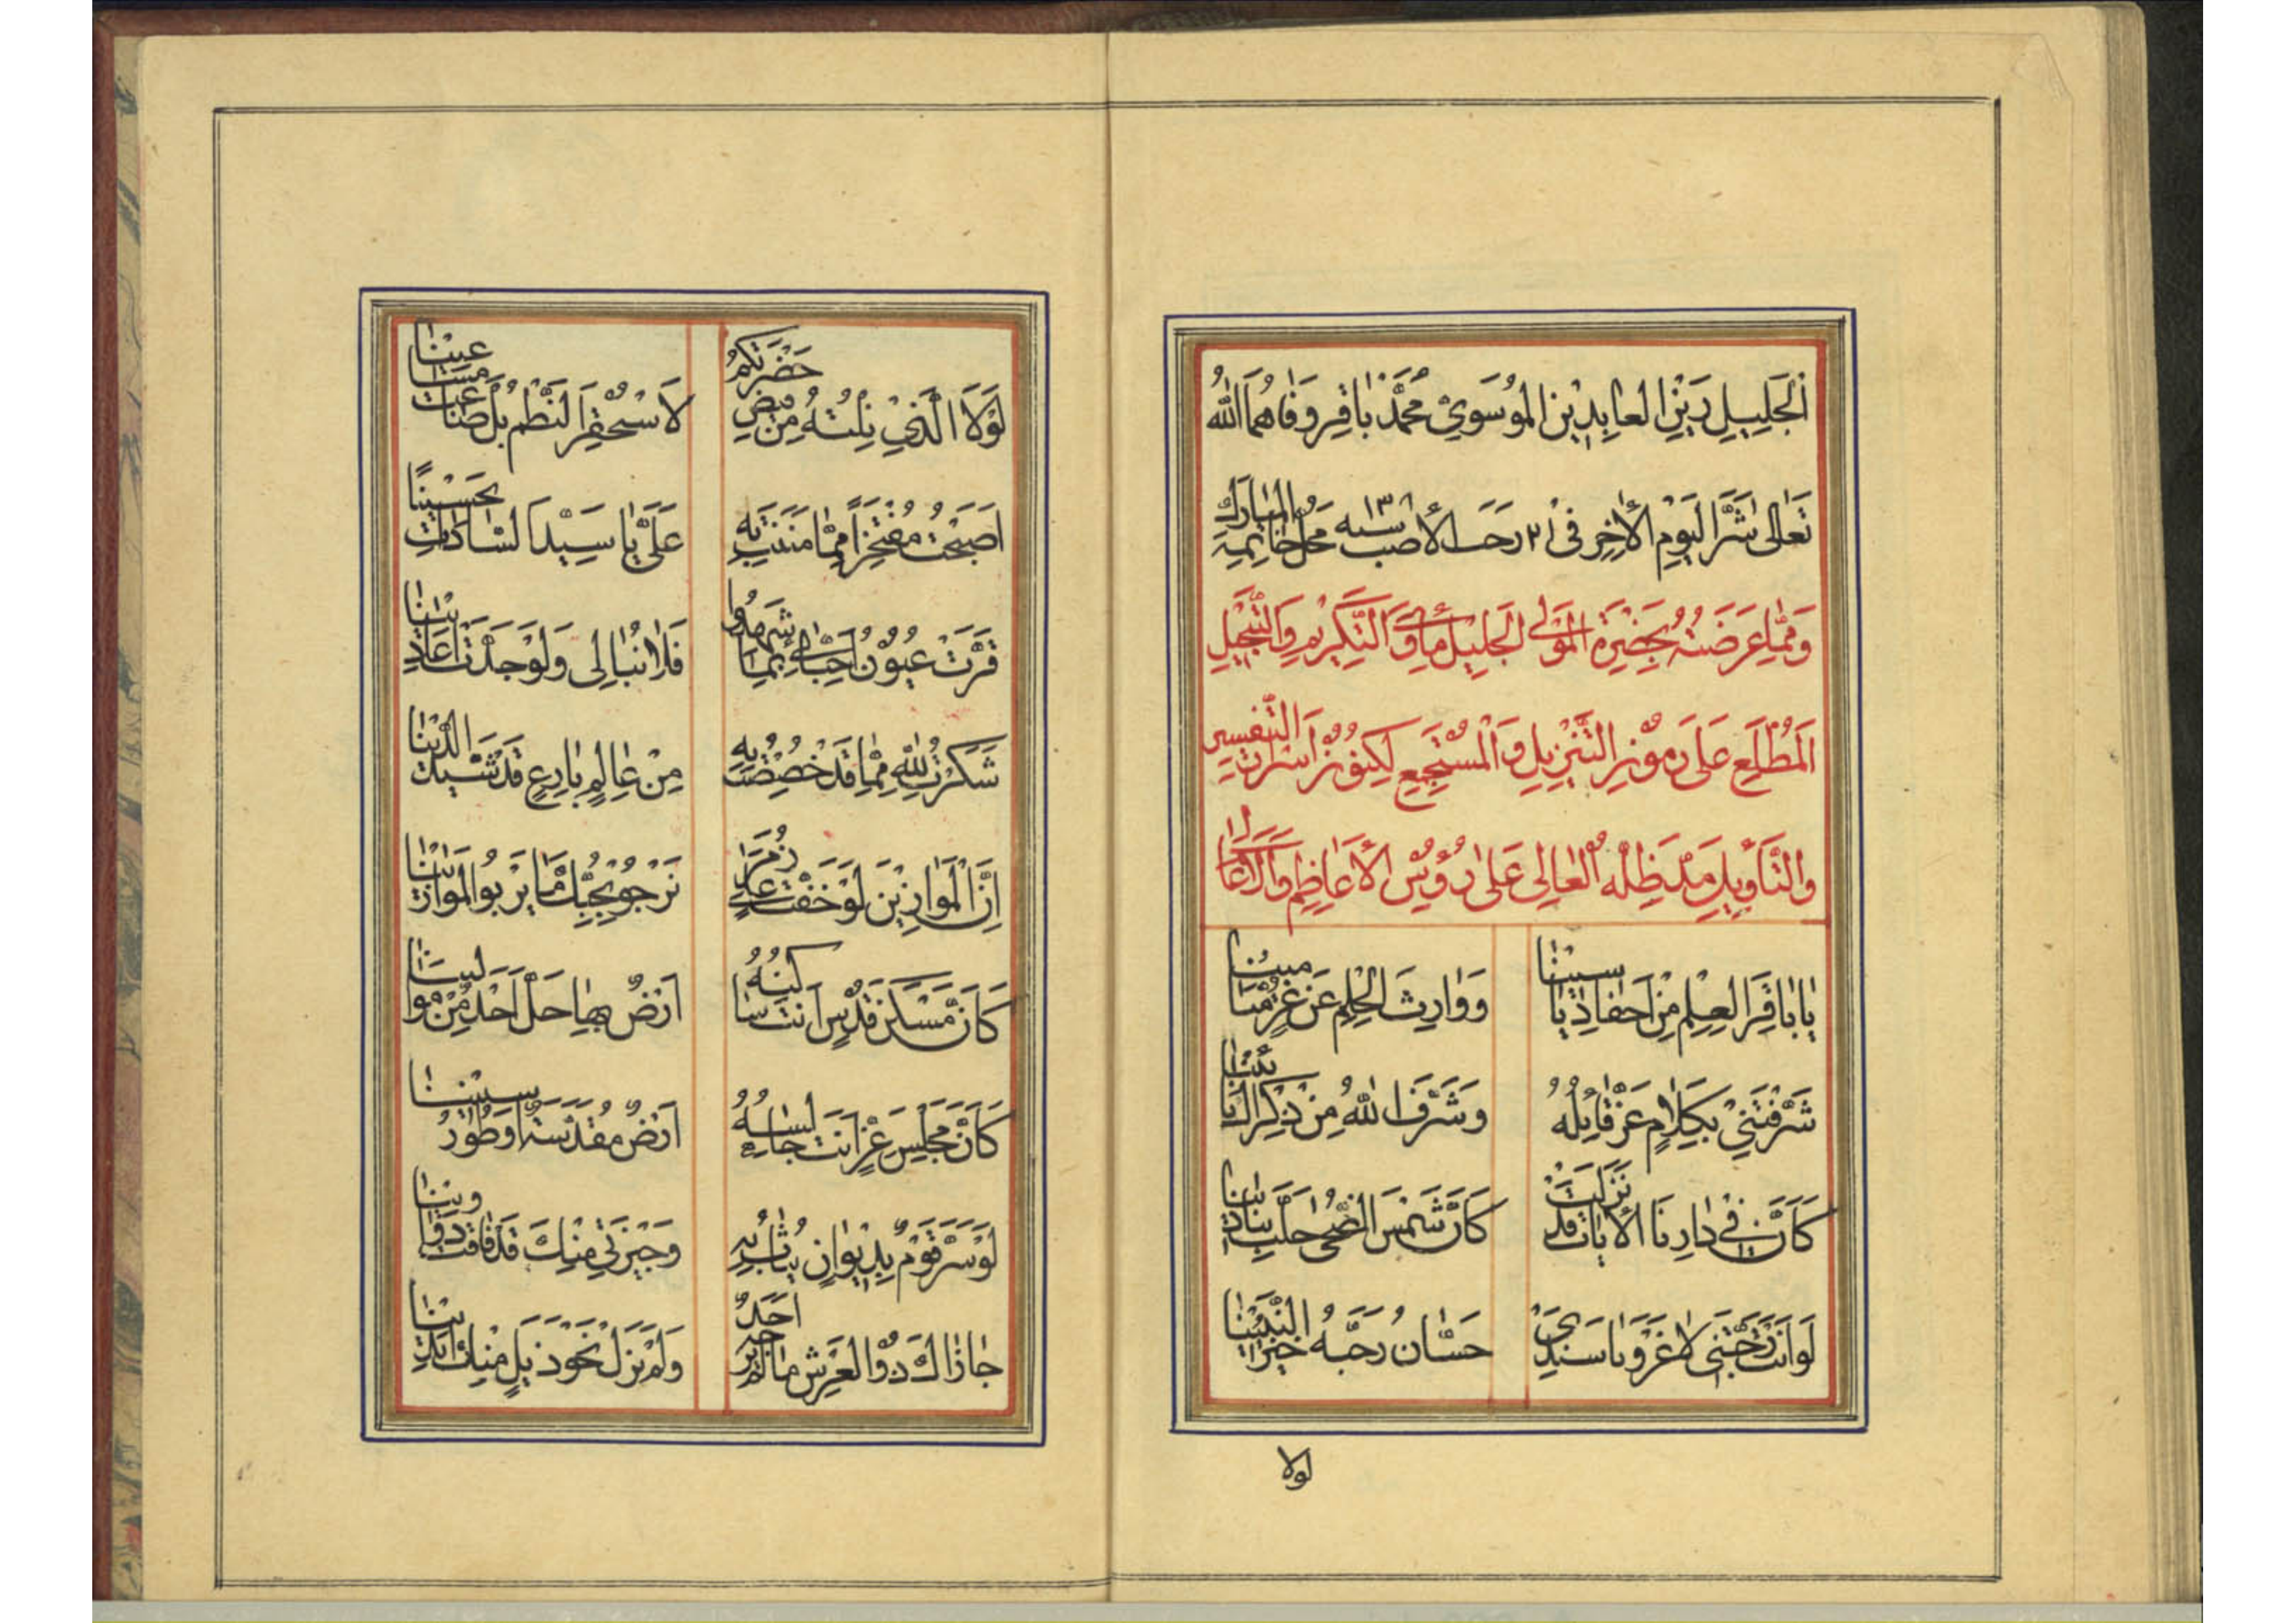 الجَلِيلِ زَيْنِ العابِدِيْنِ المُوسَوِيْ مُحَمَّدْ باقِر وَقاهُمَا اللهُ
تَعالى شَرَّ اليَوْمِ الأخِر في ٢١ رجب الأصب سنه ١٣٠٨ محل خاتمه المبارك
وَمِمّا عَرَضَتُهُ بِحَضْرَةِ المَوْلى الجَلِيْل مَأوَى التَّكْرِيْمِ وَالتَّبْجِيْلِ
المُطَّلِعِ عَلى رمُوْزِ التَّنْزِيلِ وَالمُسْتَجْمِعِ لِكُنُوْزِ اَسْرارِ التَّفْسِيرِ
والتَّأوِيْلِ مَدَّ ظِلُّهُ العالِى عَلى رُؤُسِ الأعاظِمِ وَ
يا باقِرَ العِلْمِ مِنْ اَحْفادِ ياسِيْنا وَوارِثَ الحِلْمِ عَنْ غُرٍّ مَيامِيْنا
شَرَّفْتَنِيْ بِكَلامٍ عَزَّ قائِلُهُ وَشَرَّفَ اللهُ مِنْ ذِكْراكَ
كَاَنَّ فِيْ دارِنَا الأياتُ قَدْ نَزَلَتْ كَاَنَّ شَمْسَ الضُّحى حَلَّتْ بِنادِيْنا
لَوْ اَنْتَ رَحَّبْتَنِى لا غَرْوَ يا سَنَدِيْ حَسّانُ رَحَّبَهُ خَيْرُ النَّبِيّيْنا
لولا
لَوْلا الَّذِيْ نِلْتُهُ مِنْ فَيْضِ حَضْرَتِكُمْ لا
اَصْبَحْتُ مُفْتَخِرًا مِمّا مَنَنْتَ بِهِ عَلَيَّ يا سَيِّدَ السّاداتِ تَحْسِيْنًا
قَرَّتْ عُيُوْنُ اَحِبّائِيْ بِما شَهِدُوا فَلا نُبالِى وَلَوْ جَدَّتْ اَعادِيْنا
شَكَرْتُ لِلّهِ مِمّا قَدْ خُصِصْتُ بِهِ مِنْ عالِمٍ بارِعٍ قَدْ شَيَّدَ الدِّيْنا
اِنَّ المَوازِيْنَ لَوْ خَفَّتْ عَلى زُمَرٍ نَرْجُوْ بِحُبِّكَ ما يَرْبُو المَوازِيْنا
كَاَنَّ مَسْكَنَ قُدْسٍ اَنْتَ ساكِنُهُ اَرْضٌ بِها حَلَّ اَحْدٌ مِنْ مَوالِيْنا
كَاَنَّ مَجْلِسَ عِزٍّ اَنْتَ جالِسُهُ اَرْضٌ مُقَدَّسَةٌ اَوْ طُوْرُ سِيْنِيْنا
لَوْ سَرَّ قَوْمٌ بِدِيْوانٍ يُثابُ بِهِ وَجِيْزَتِيْ مِنْكَ قَدْ فاقَتْ دَواوِيْنا
جازاكَ ذُو العَرْشِ ما لَمْ يُجْزِهِ اَحَدٌ وَلَمْ نَزَلْ نَحْوَ ذَيْلٍ مِنْكَ اَيْدِيْنا